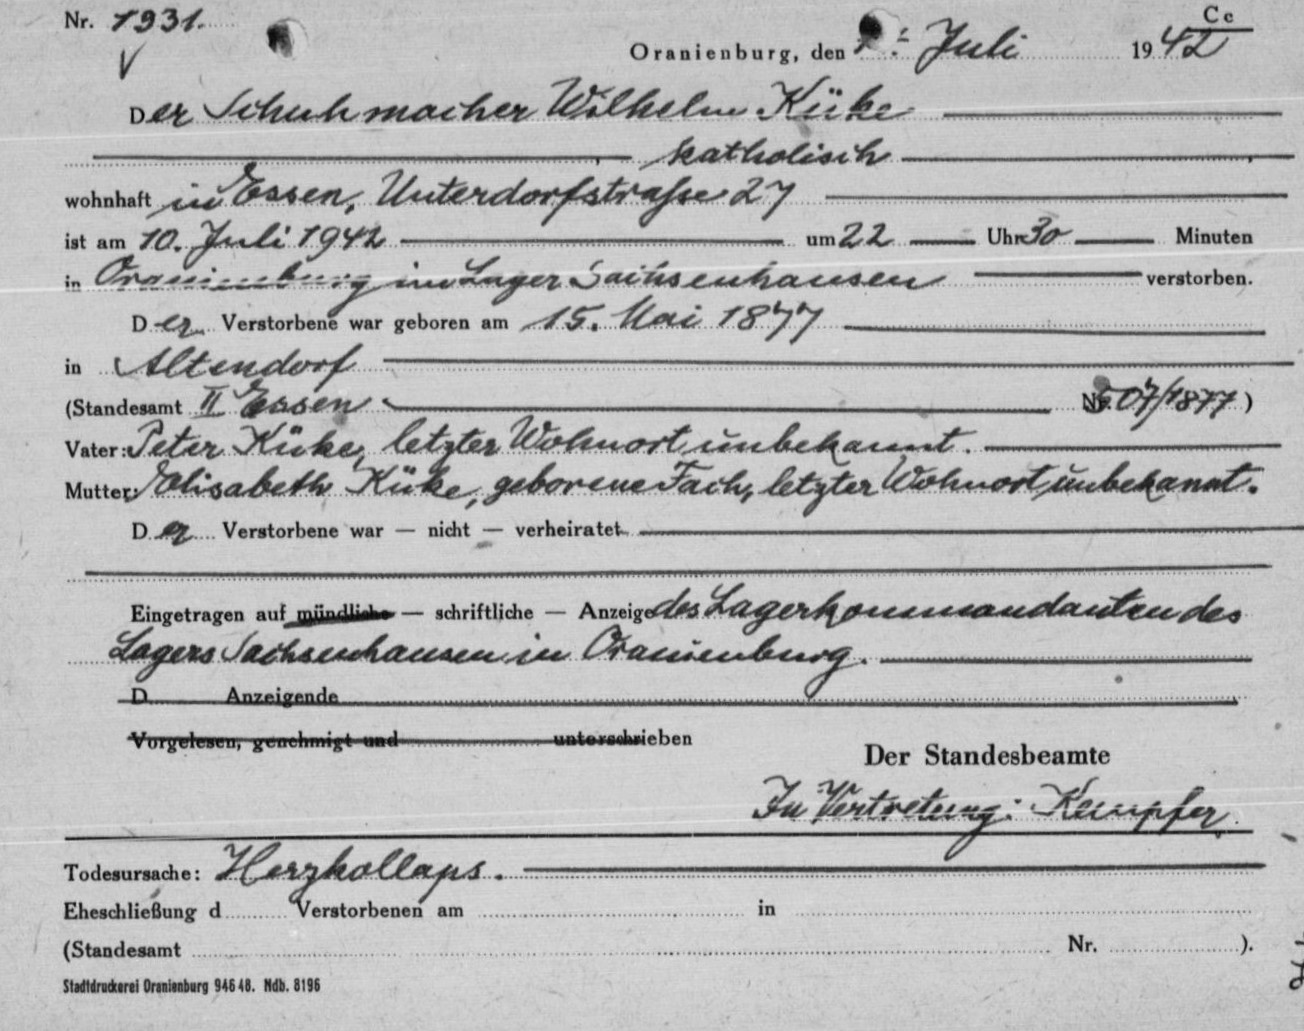 Nr. 1931.
Cc
Oranienburg, den Juli 1942
Der Schuhmacher Wilhelm Küke
katholisch
wohnhaft in Essen, Unterdorfstraße 27
ist am 10. Juli 1942 um 22 Uhr 30 Minuten
in Oranienburg im Lager Sachsenhausen verstorben.
Der Verstorbene war geboren am 15. Mai 1877
in Altendorf
(Standesamt II Essen Nr. /1877)
Vater: Peter Küke, letzter Wohnort unbekannt.
Mutter: Elisabeth Küke, geborene Fach, letzter Wohnort unbekannt.
Der Verstorbene war — nicht — verheiratet
Eingetragen auf mündliche — schriftliche — Anzeige des Lagerkommandanten des
Lagers Sachsenhausen in Oranienburg.
D Anzeigende
Vorgelesen, genehmigt und unterschrieben
Der Standesbeamte
In Vertretung: Kempfer
Todesursache: Herzkollaps.
Eheschließung d Verstorbenen am in
(Standesamt Nr. ).
Stadtdruckerei Oranienburg 946 48. Ndb. 8196